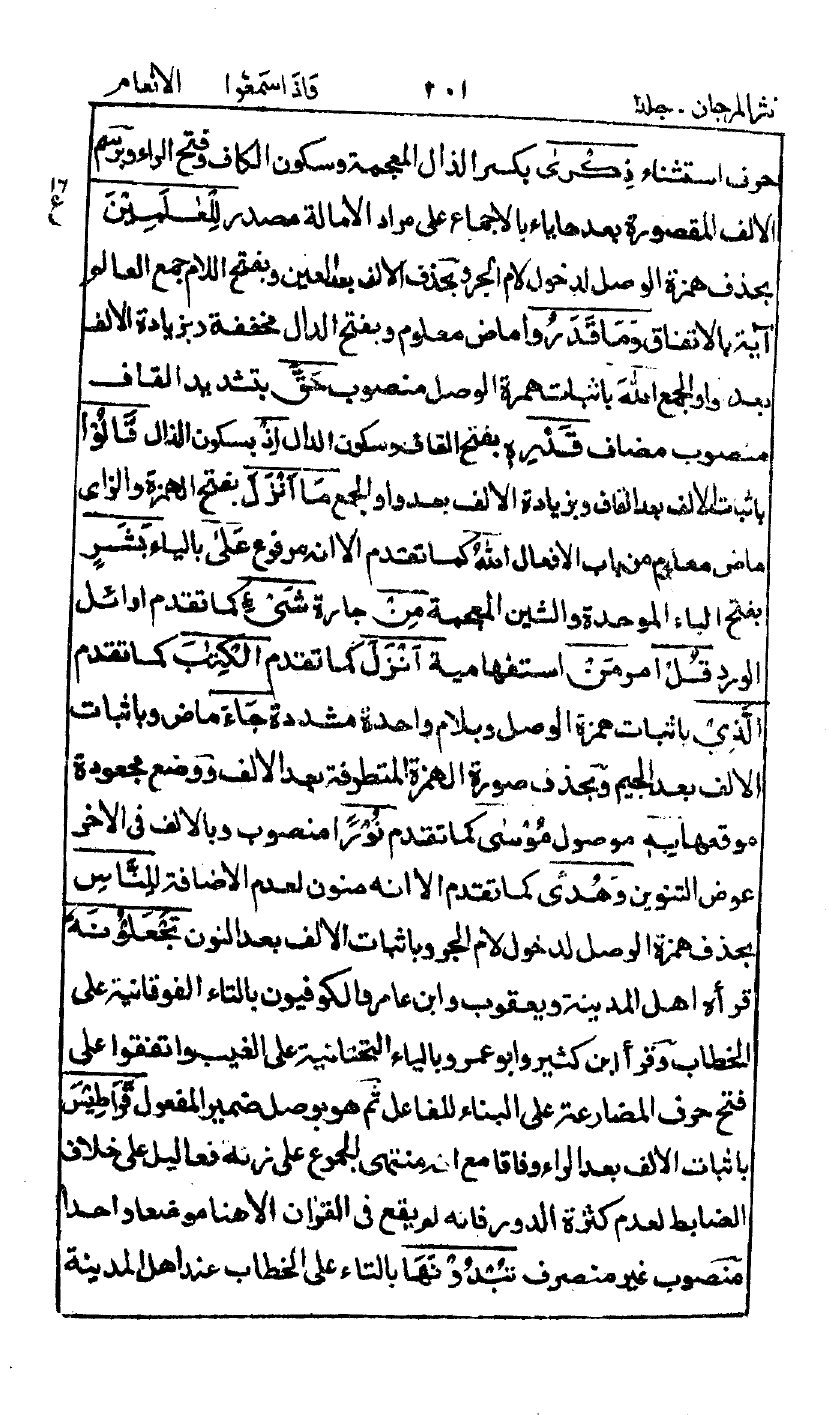 نثر المرجان - جلد٢ ٢٠١ فاذا سمعوا الانعام
حرف استثناء ذِكْرىٰ بكسر الذال المعجمة وسكون الكاف وفتح الراء وبرسم
الالف المقصورة بعدها ياء بالاجماع على مراد الامالة مصدر لِلْعٰلَمِيْنَ
بحذف همزة الوصل لدخول لام الجر وبحذف الالف بعد العين وبفتح اللام جمع العالم
آية بالاتفاق وَمَا قَدَرُوا ماض معلوم وبفتح الدال مخففة وبزيادة الالف
بعد واو الجمع اللّٰهَ باثبات همزة الوصل منصوب حَقَّ بتشديد القاف
منصوب مضاف قَدْرِهٖ بفتح القاف وسكون الدال اِذْ بسكون الذال قَالُوْا
باثبات الالف بعد القاف وبزيادة الالف بعد واو الجمع مَا اَنْزَلَ بفتح الهمزة والزاى
ماض معلوم من باب الافعال اللّٰهُ كما تقدم الا انه مرفوع عَلٰى بالياء بَشَرٍ
بفتح الباء الموحدة والشين المعجمة مِنْ جارة شَيْءٍ كما تقدم اوائل
الورد قُلْ امر مَنْ استفهامية اَنْزَلَ كما تقدم الْكِتٰبَ كما تقدم
الَّذِيْ باثبات همزة الوصل وبلام واحدة مشددة جَاءَ ماض وباثبات
الالف بعد الجيم وبحذف صورة الهمزة المتطرفة بعد الالف ووضع مجعودة
موقعها بِهٖ موصول مُوْسٰى كما تقدم نُوْرًا منصوب وبالالف فى الاخر
عوض التنوين وَهُدًى كما تقدم الا انه منون لعدم الاضافة لِلنَّاسِ
بحذف همزة الوصل لدخول لام الجر وباثبات الالف بعد النون تَجْعَلُوْنَهٗ
قرأه اهل المدينة ويعقوب وابن عامر والكوفيون بالتاء الفوقانية على
الخطاب وقرأ ابن كثير وابو عمرو بالياء التحتانية على الغيب واتفقوا على
فتح حرف المضارعة على البناء للفاعل ثم هو بوصل ضمير المفعول قَرَاطِيْسَ
باثبات الالف بعد الراء وفاقا مع انه منتهى الجموع على زنة فعاليل على خلاف
الضابط لعدم كثرة الدور فانه لم يقع فى القرآن الا هنا موضعا واحدا
منصوب غير منصرف تُبْدُوْنَهَا بالتاء على الخطاب عند اهل المدينة